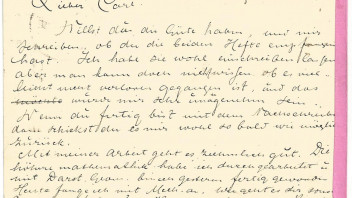 Lieber Carl.
Willst du die Güte haben, und mir
schreiben, ob der die beiden Hefte empfangen
hast. Ich habe die wohl einschreiben lassen
aber man kann doch nicht wissen, ob es viel-
leicht verloren gegangen ist, und das
würde mir sehr unangenehm sein.
Wenn du fertig bist mit dem Nachschreiben
dann schickst du es mir wohl so bald wie möglich
zurück.
Mit meiner Arbeit geht es ziemlich gut. Die
höhere Mathematik habe ich durchgearbeitet u.
mit Darst. Geom. bin ich gestern fertig geworden
Heute fang ich mit Mech. an.